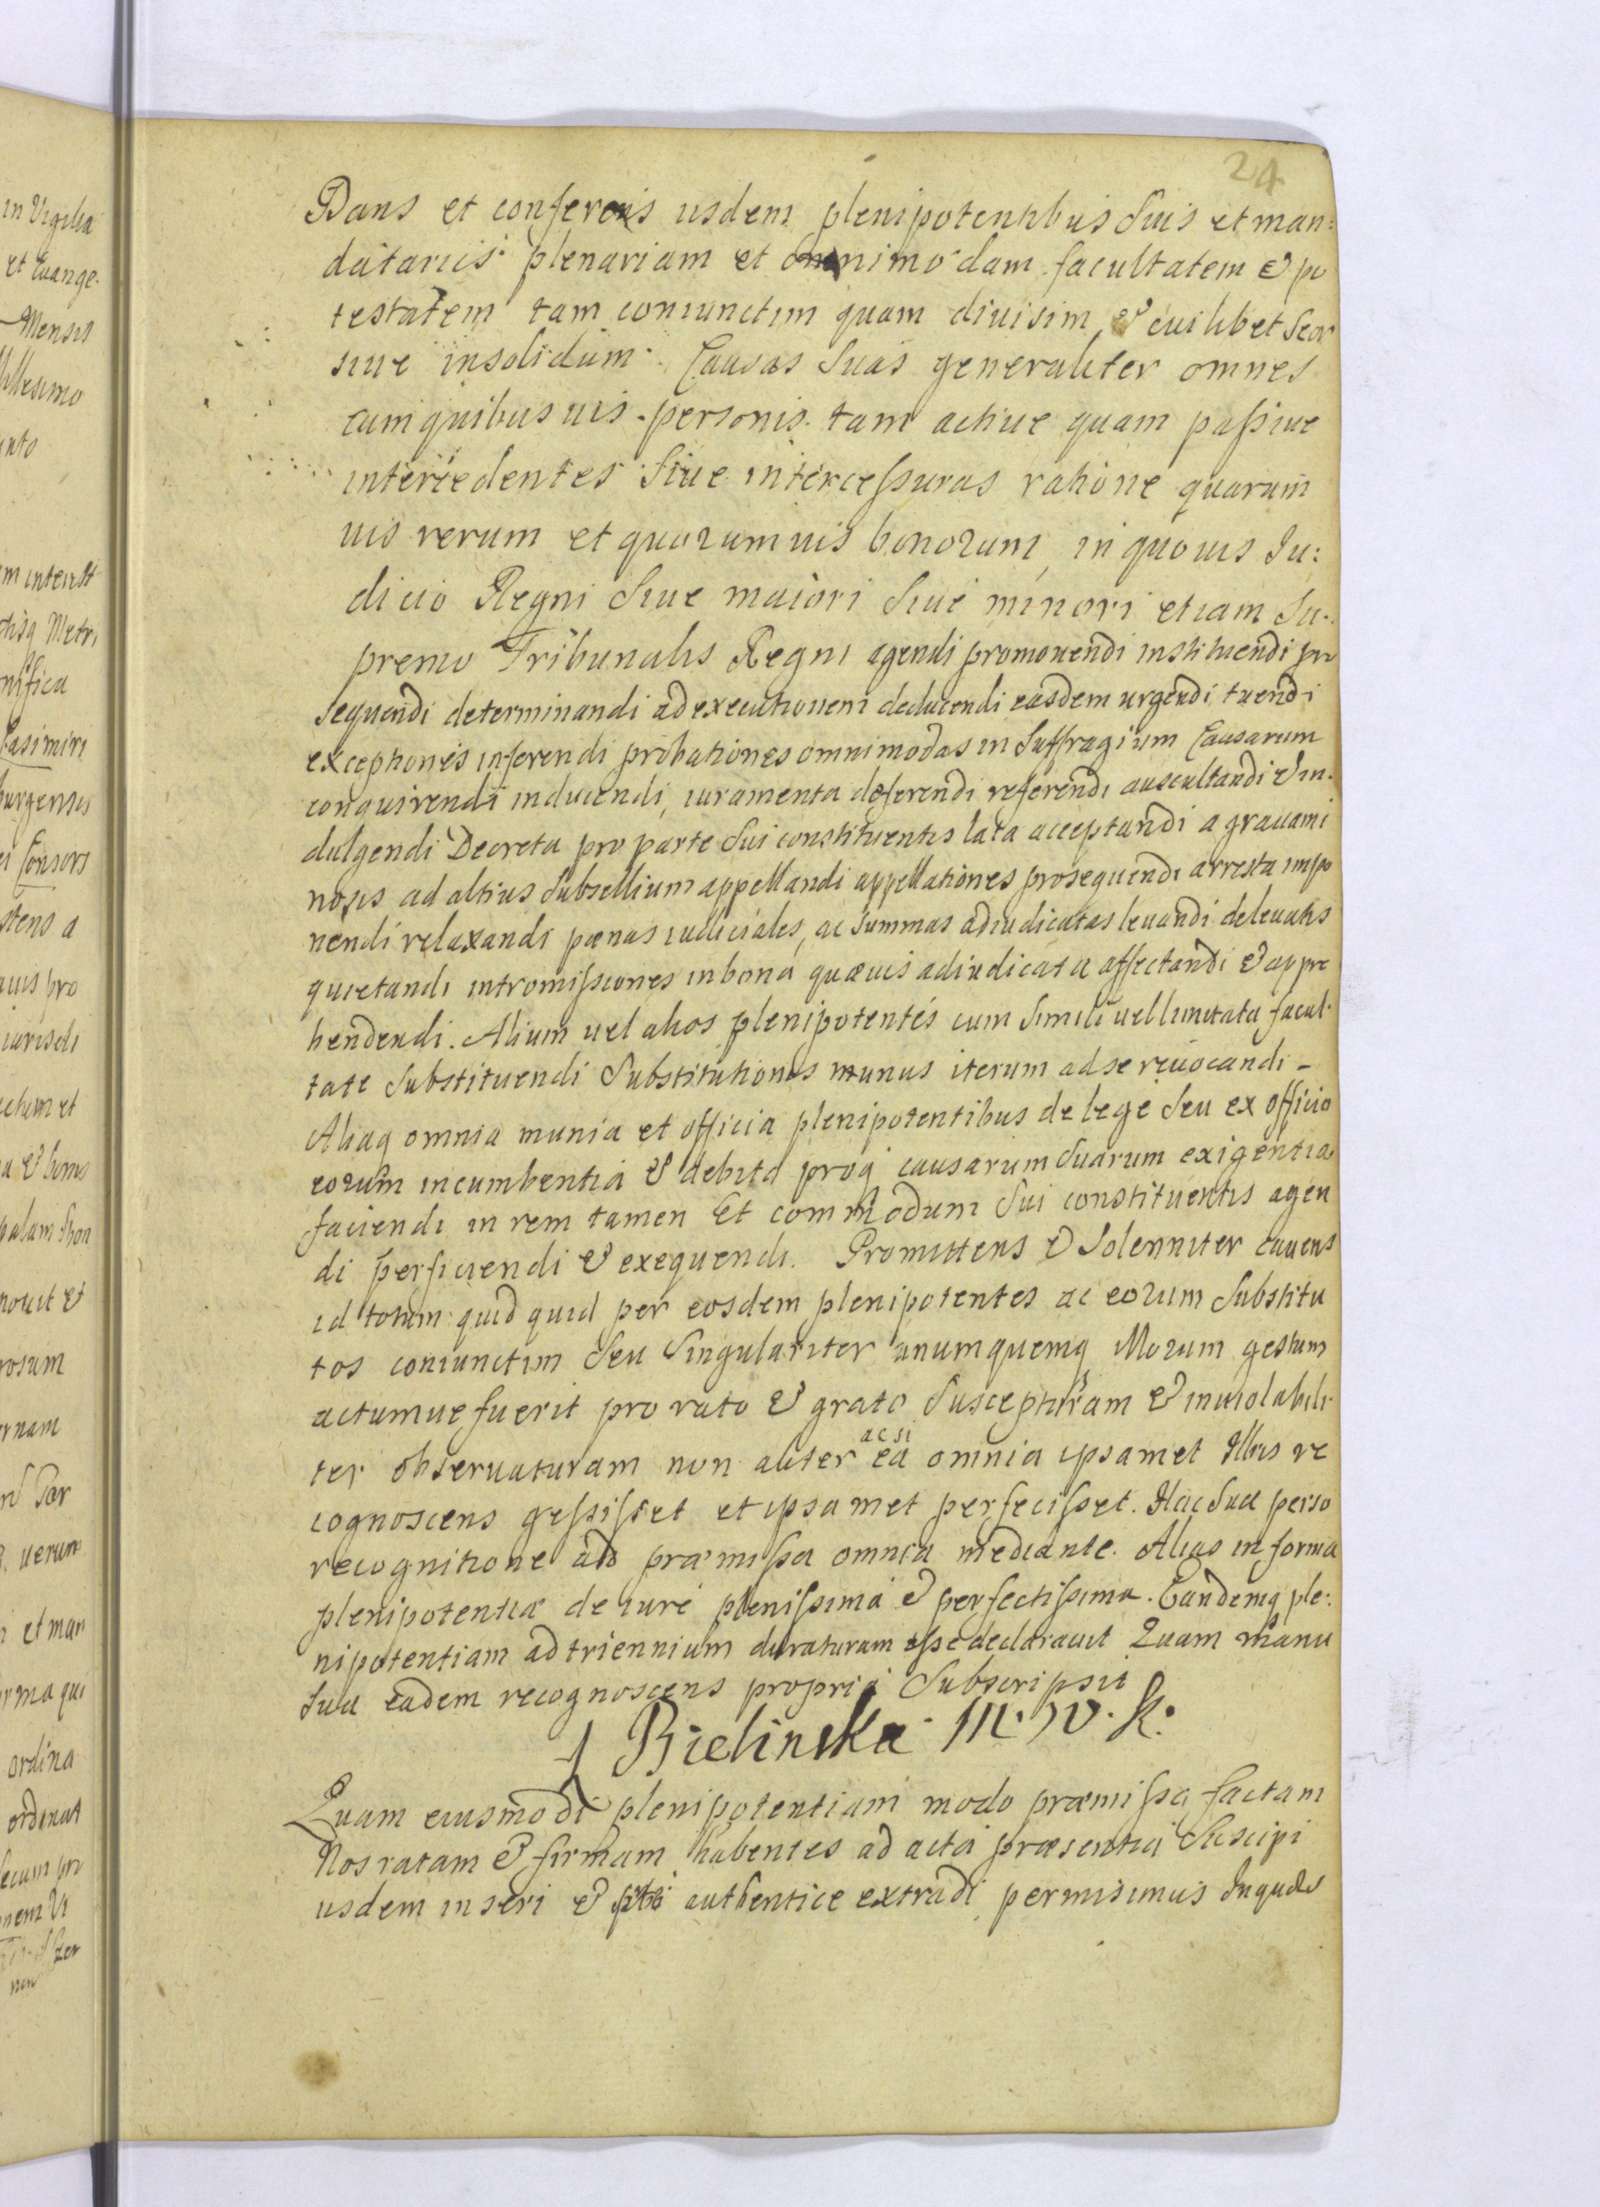 24
Dans et conferens iisdem plenipotentibus Suis et man:
datariis plenariam et omnimodam facultatem & po
testatem tam coniunctim quam diuisim & cuilibet Seor
siue insolidum. Causas Suas generaliter omnes
cum quibusuis personis tam actiue quam passiue
intercedentes Siue intercessuras ratione quarum
uis rerum et quorumuis bonorum, in quouis Iu:
dicio Regni Siue maiori Siue minori etiam Su:
premo Tribunalis Regni agendi promouendi instituendi pro
sequendi determinandi ad executionem deducendi easdem urgendi tuendi
exceptiones inferendi probationes omnimodas in Suffragium Causarum
conquirendi inducendi, iuramenta deferendi referendi auscultandi & in:
dulgendi Decreta pro parte Sui constituentis lata acceptandi a grauami
nosis ad altius Subsellium appellandi appellationes prosequendi arresta impo
nendi relaxandi pœnas iudiciales, ac Summas adiudicatas leuandi de leuatis
quietandi intromissiones in bona quæuis adiudicata affectandi & appre
hendendi. Alium uel alios plenipotentes cum Simili uel limitata facul:
tate Substituendi Substitutionis munus iterum ad se reuocandi –
Aliaq omnia munia et officia plenipotentibus de lege Seu ex officio
eorum incumbentia & debita proq causarum Suarum exigentia
faciendi in rem tamen Et commodum Sui constituentis agen
di perficiendi & exequendi. Promittens & Solenniter cauens
id totum quid quid per eosdem plenipotentes ac eorum Substitu
tos coniunctim Seu Singulariter unumquemq Illorum gestum
actumue fuerit pro rato & grato Suscepturam & inuiolabili
ter obseruaturam non aliter ac si ea omnia ipsamet Illius re
cognoscens gessisset et ipsamet perfecisset. Hac Sua perso
recognitione ad præmissa omnia mediante. Alias in forma
plenipotentiæ de iure plenissima & perfectissima. Eandemq ple:
nipotentiam ad triennium duraturam esse declarauit Quam manu
Sua eadem recognoscens propria Subscripsit
Bielinska m. w. k.
Quam eiusmodi plenipotentiam modo præmisso factam
Nos ratam & firmam habentes ad acta præsentia Suscipi
iisdem inseri & authentice extradi permisimus Inquas